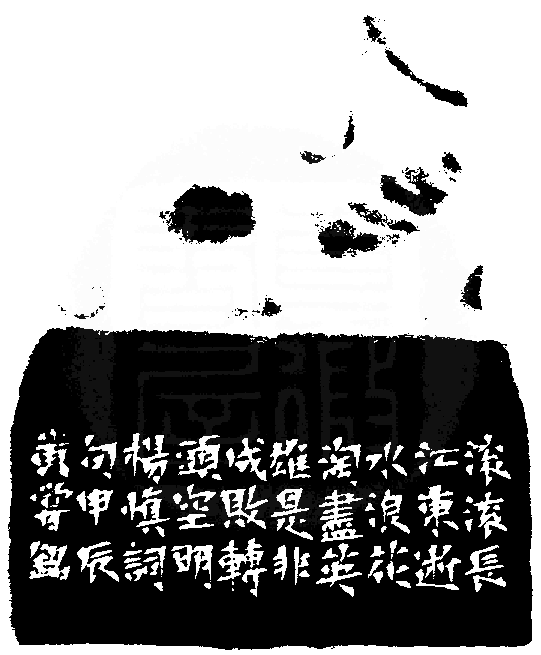 滚滚長
江東逝
水浪花
淘盡英
雄是非
成敗轉
頭空明
楊慎詞
句甲辰
黄尝銘